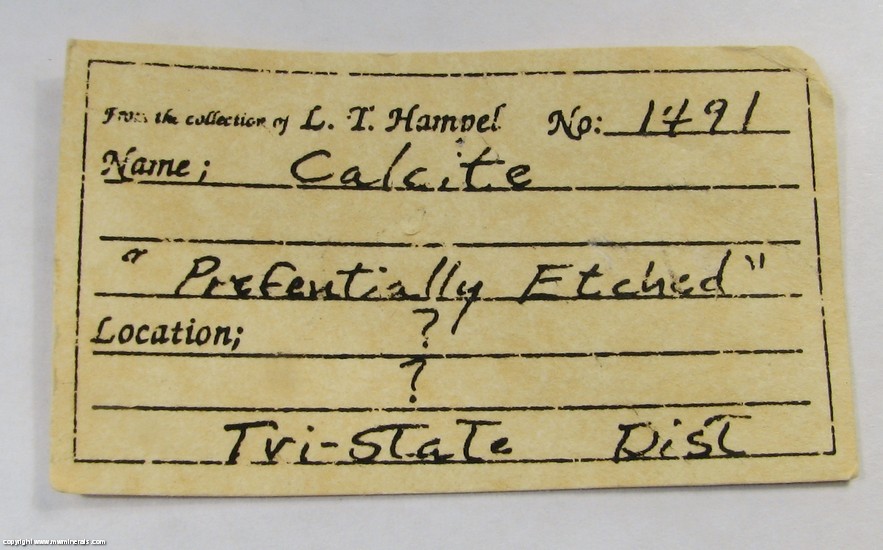 From the collection of L. T. Hampel No: 1491
Name; Calcite
"Prefentially Etched"
Location; ?
?
Tri-State Dist
copyright www.mwminerals.com